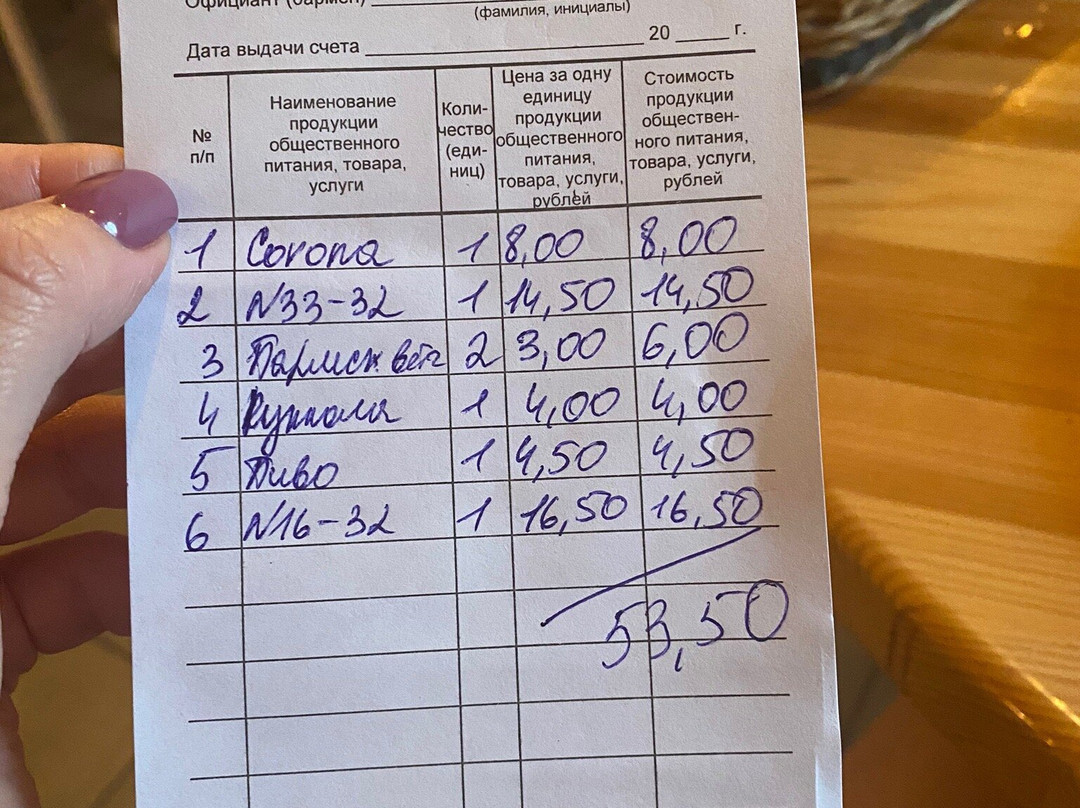 Официант (бармен)
(фамилия, инициалы)
Дата выдачи счета 20 г.
№ п/п
Наименование
продукции
общественного
питания, товара,
услуги
Коли-
чество
(еди-
ниц)
Цена за одну
единицу
продукции
общественного
питания,
товара, услуги,
рублей
Стоимость
продукции
обществен-
ного питания,
товара, услуги,
рублей
1 Corona 1 8,00 8,00
2 N33-32 1 14,50 14,50
3 Пармск. 2 3,00 6,00
4 Руккола 1 4,00 4,00
5 Пиво 1 4,50 4,50
6 N16-32 1 16,50 16,50
53,50